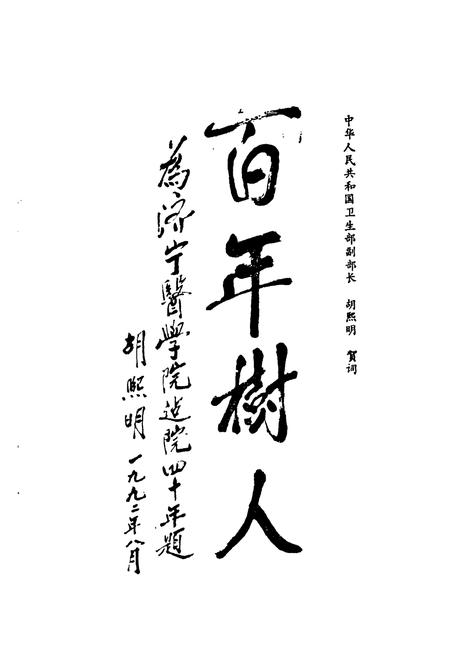 中华人民共和国卫生部副部长 胡熙明 贺词
百年樹人
為济宁醫學院建院四十年題
胡熙明 一九九二年八月